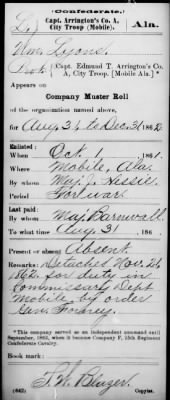 (Confederate.)
L
Capt. Arrington's Co. A,
City Troop (Mobile).
Ala.
Wm. Lyons
Pvt
Capt. Edmund T. Arrington's Co.
A, City Troop. (Mobile Ala.)*
Appears on
Company Muster Roll
of the organization named above,
for Aug 31 to Dec 31, 1862.
Enlisted:
When Oct 1, 1861.
Where Mobile, Ala.
By whom Maj. J. Hessie
Period For war
Last paid:
By whom Maj Barnwall
To what time Aug 31, 186
Present or absent Absent
Remarks: Detached Nov. 21,
1862, for duty in
Commissary Dept
Mobile, by order
Gen. Forney.
*This company served as an independent command until
September, 1862, when it became Company F, 15th Regiment
Confederate Cavalry.
Book mark:
(642)
Copyist.